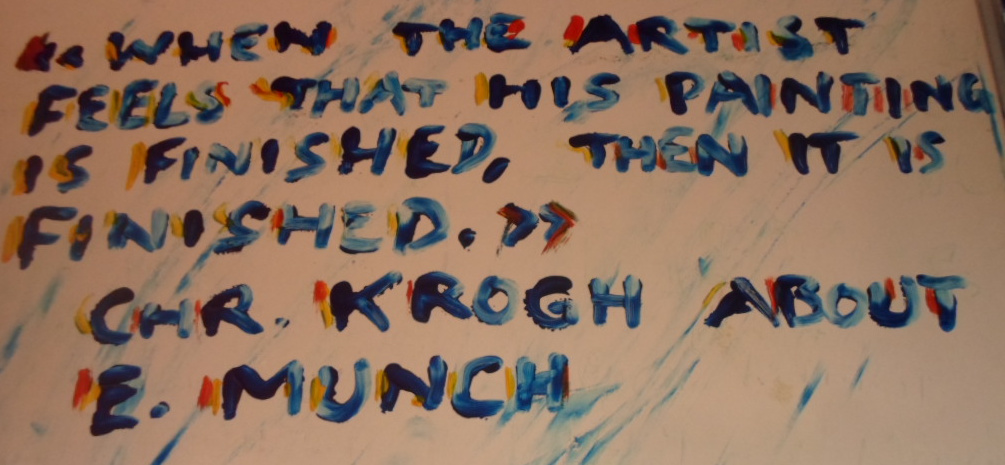 «WHEN THE ARTIST
FEELS THAT HIS PAINTING
IS FINISHED, THEN IT IS
FINISHED.»
CHR. KROGH ABOUT
E. MUNCH